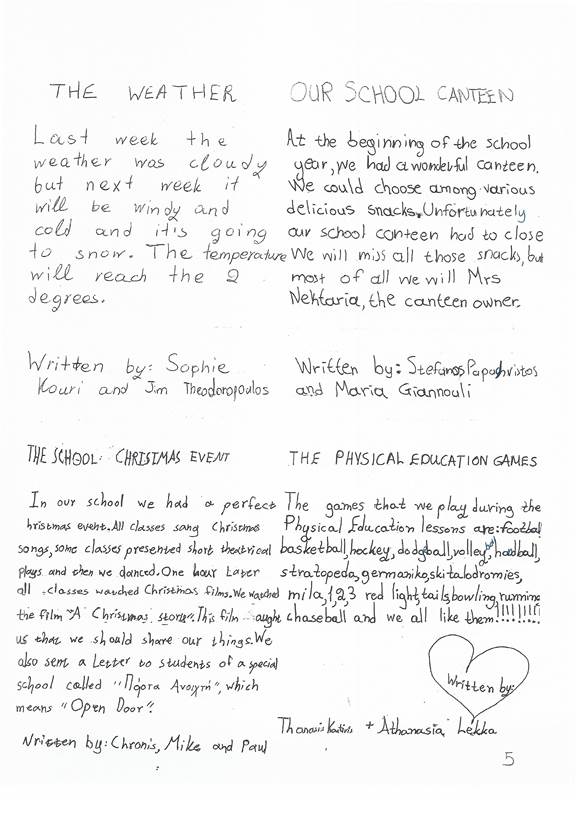 THE WEATHER
Last week the
weather was cloudy
but next week it
will be windy and
cold and it's going
to snow. The temperature
will reach the 2
degrees.
Written by: Sophie
Kouri and Jim Theodoropoulos
OUR SCHOOL CANTEEN
At the beginning of the school
year, we had a wonderful canteen.
We could choose among various
delicious snacks. Unfortunately
our school canteen had to close
We will miss all those snacks, but
most of all we will Mrs
Nektaria, the canteen owner.
Written by: Stefanos Papachristos
and Maria Giannouli
THE SCHOOL: CHRISTMAS EVENT
In our school we had a perfect
hristmas event. All classes sang Christmas
songs, some classes presented short theatrical
plays and then we danced. One hour later
all classes watched Christmas films. We watched
the film "A Christmas story". This film aught
us that we should share our things. We
also sent a letter to students of a special
school called "Πόρτα Ανοιχτή", which
means "Open Door".
Written by: Chronis, Mike and Paul
THE PHYSICAL EDUCATION GAMES
The games that we play during the
Physical Education lessons are: football
basketball, hockey, dodgeball, volleyball, handball,
stratopeda, germaniko, skitalodromies,
mila, 1,2,3 red light, tails, bowling, running
chaseball and we all like them!!!!!!!!
Written by:
Thanasis + Athanasia Lekka
5